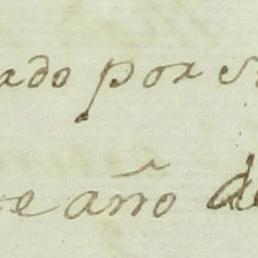 ado por s
te año de